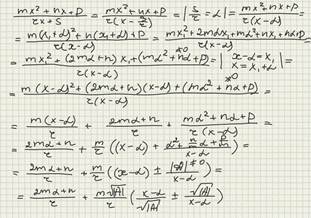 mx²+nx+p / τx+s = mx²+nx+p / τ(x-s/τ) = |s/τ=α| = mx²+nx+p / τ(x-α)
= m(x₁+α)²+n(x₁+α)+p / τ(x-α) = mx₁²+2mαx₁+mα²+nx₁+nα+p / τ(x-α)
= mx₁²+(2mα+n)x₁+(mα²+nα+p)≠0 / τ(x-α) = |x-α=x₁ x=x₁+α| =
= m(x-α)²+(2mα+n)(x-α)+(mα²+nα+p)≠0 / τ(x-α) =
= m(x-α)/τ + 2mα+n/τ + mα²+nα+p / τ(x-α) =
= 2mα+n/τ + m/τ((x-α)+ α²+n/mα+p/m / x-α) =
= 2mα+n/τ + m/τ((x-α) ± |A|≠0 / x-α) =
= 2mα+n/τ + m√|A|/τ (x-α/√|A| ± √|A|/x-α)